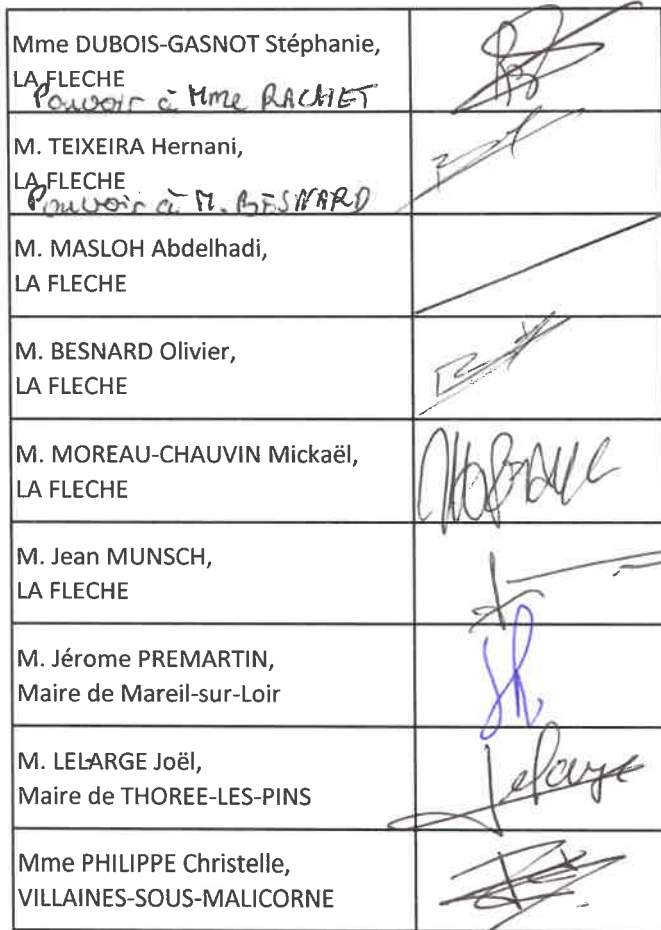 Mme DUBOIS-GASNOT Stéphanie,
LA FLECHE
Pouvoir à Mme RACHET
M. TEIXEIRA Hernani,
LA FLECHE
Pouvoir à M. BESNARD
M. MASLOH Abdelhadi,
LA FLECHE
M. BESNARD Olivier,
LA FLECHE
M. MOREAU-CHAUVIN Mickaël,
LA FLECHE
M. Jean MUNSCH,
LA FLECHE
M. Jérome PREMARTIN,
Maire de Mareil-sur-Loir
M. LELARGE Joël,
Maire de THOREE-LES-PINS
Lelarge
Mme PHILIPPE Christelle,
VILLAINES-SOUS-MALICORNE